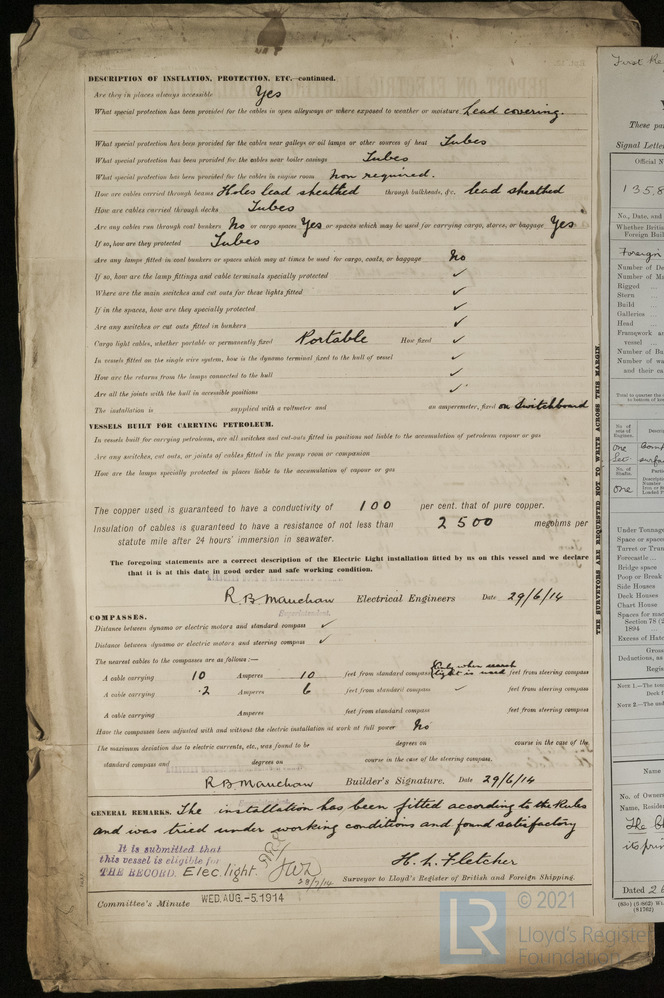 DESCRIPTION OF INSULATION, PROTECTION, ETC.—continued.
Are they in places always accessible Yes
What special protection has been provided for the cables in open alleyways or where exposed to weather or moisture Lead covering.
What special protection has been provided for the cables near galleys or oil lamps or other sources of heat Tubes
What special protection has been provided for the cables near boiler casings Tubes
What special protection has been provided for the cables in engine room Non required.
How are cables carried through beams Holes lead sheathed through bulkheads, &c. lead sheathed
How are cables carried through decks Tubes
Are any cables run through coal bunkers No or cargo spaces Yes or spaces which may be used for carrying cargo, stores, or baggage Yes
If so, how are they protected Tubes
Are any lamps fitted in coal bunkers or spaces which may at times be used for cargo, coals, or baggage No
If so, how are the lamp fittings and cable terminals specially protected ✓
Where are the main switches and cut outs for these lights fitted ✓
If in the spaces, how are they specially protected ✓
Are any switches or cut outs fitted in bunkers ✓
Cargo light cables, whether portable or permanently fixed Portable How fixed ✓
In vessels fitted on the single wire system, how is the dynamo terminal fixed to the hull of vessel ✓
How are the returns from the lamps connected to the hull ✓
Are all the joints with the hull in accessible positions ✓
The installation is supplied with a voltmeter and as amperemeter, fixed on Switchboard
VESSELS BUILT FOR CARRYING PETROLEUM.
In vessels built for carrying petroleum, are all switches and cut-outs fitted in positions not liable to the accumulation of petroleum vapour or gas
Are any switches, cut outs, or joints of cables fitted in the pump room or companion
How are the lamps specially protected in places liable to the accumulation of vapour or gas
The copper used is guaranteed to have a conductivity of 100 per cent. that of pure copper.
Insulation of cables is guaranteed to have a resistance of not less than 2500 megohms per
statute mile after 24 hours' immersion in seawater.
The foregoing statements are a correct description of the Electric Light installation fitted by us on this vessel and we declare
that it is at this date in good order and safe working condition.
R.B. Mauchan Electrical Engineers Date 29/6/14
Superintendent.
COMPASSES.
Distance between dynamo or electric motors and standard compass ✓
Distance between dynamo or electric motors and steering compass ✓
The nearest cables to the compasses are as follows:—
A cable carrying 10 Amperes 10 feet from standard compass Only when search light is used feet from steering compass
A cable carrying .2 Amperes 6 feet from standard compass ✓ feet from steering compass
A cable carrying Amperes feet from standard compass feet from steering compass
Have the compasses been adjusted with and without the electric installation at work at full power No
The maximum deviation due to electric currents, etc., was found to be degrees on course in the case of the
standard compass and degrees on course in the case of the steering compass.
R B Mauchan Builder's Signature. Date 29/6/14
GENERAL REMARKS. The installation has been fitted according to the Rules
and was tried under working conditions and found satisfactory
It is submitted that
this vessel is eligible for
THE RECORD. Elec. light. JWD 28/7/14
H. L. Fletcher
Surveyor to Lloyd's Register of British and Foreign Shipping.
Committee's Minute WED. AUG. -5. 1914
THE SURVEYORS ARE REQUESTED NOT TO WRITE ACROSS THIS MARGIN.
First Re
These pa
Signal Lette
Official N
1358
No., Date, and
Whether Britis
Foreign Buil
Foreign
Number of De
Number of Ma
Rigged
Stern
Build
Galleries
Head
Framework an
vessel
Number of Bu
Number of wa
and their ca
No. of
sets of
Engines.
One
Set
No. of
Shafts.
One
Under Tonnage
Space or spaces
Turret or Trun
Forecastle
Bridge space
Poop or Break
Side Houses
Deck Houses
Chart House
Spaces for mac
Section 78 (2
1894
Excess of Hatc
Gross
Deductions, as
Regis
NOTE 1.—The ton
Deck f
NOTE 2.—The und
Name
No. of Owners
Name, Reside
its prin
Dated 26
© 2021
LR
Lloyd's Register
Foundation